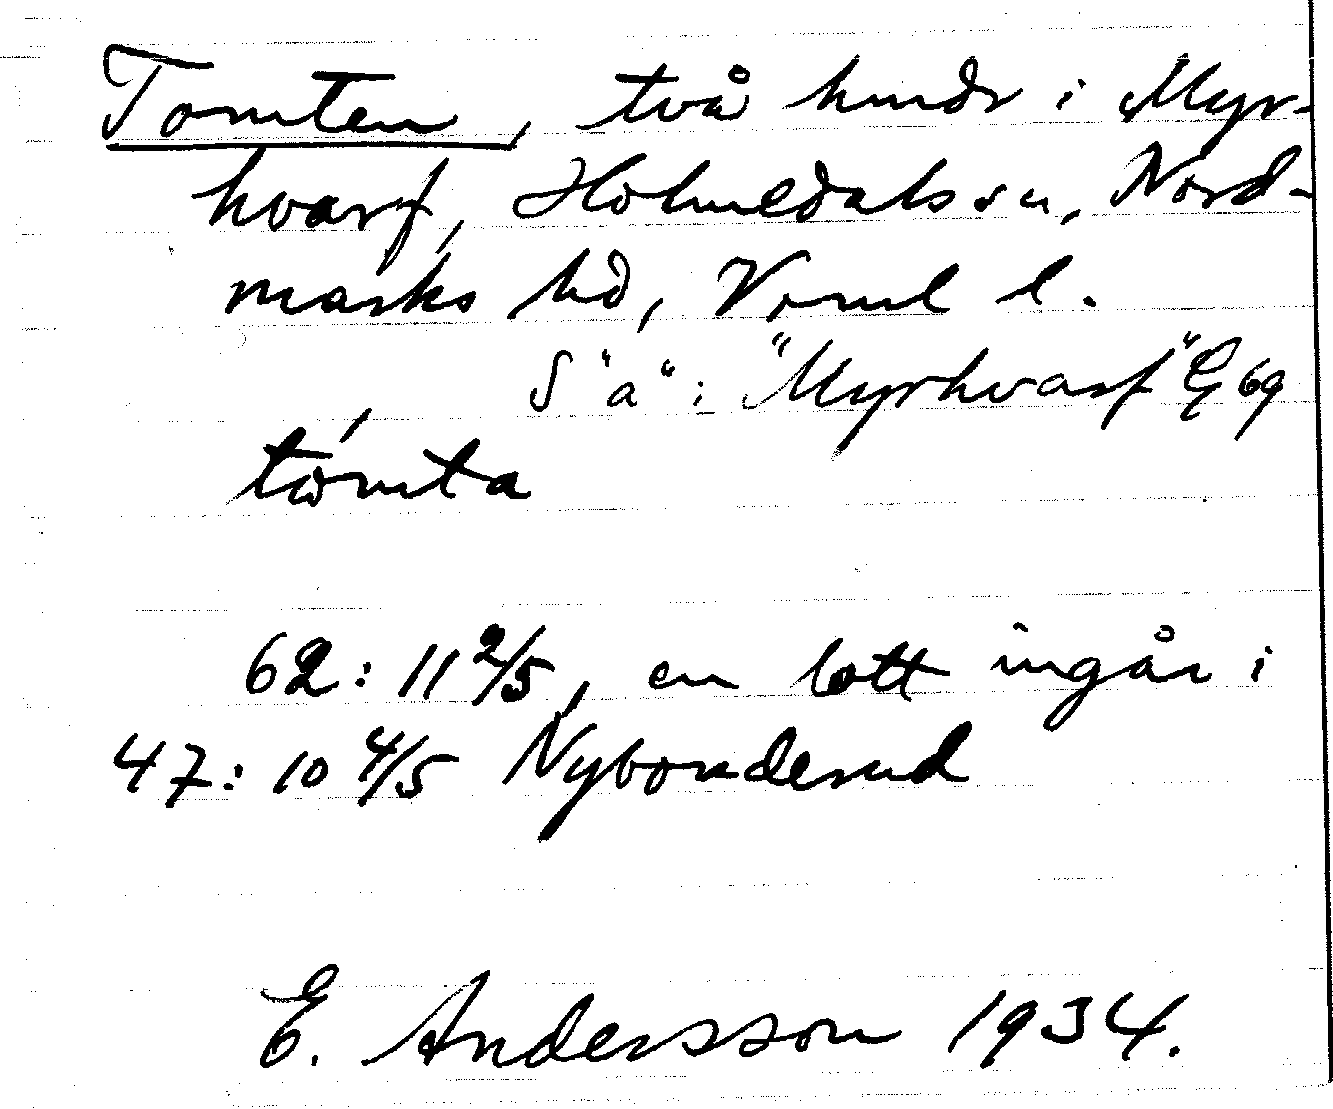 Tomten, två hmdr i Myr-
hvarf, Holmedals sn, Nord-
marks hd, Vrml l.
S "a": "Myrhvarf" G 69
tómta
62: 11 2/5, en lott ingår i
47: 10 4/5 Nybonderud
E. Andersson 1934.